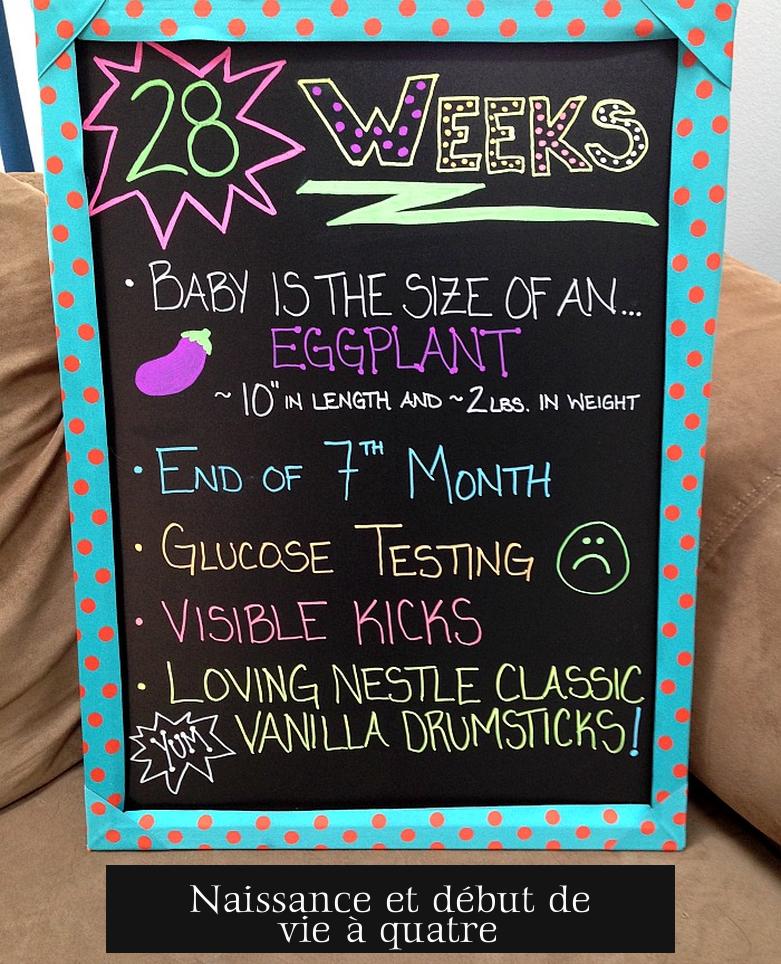 28 WEEKS
• BABY IS THE SIZE OF AN...
EGGPLANT
~ 10" IN LENGTH AND ~2 LBS. IN WEIGHT
• END OF 7TH MONTH
• GLUCOSE TESTING
• VISIBLE KICKS
• LOVING NESTLE CLASSIC
YUM! VANILLA DRUMSTICKS!
Naissance et début de
vie à quatre